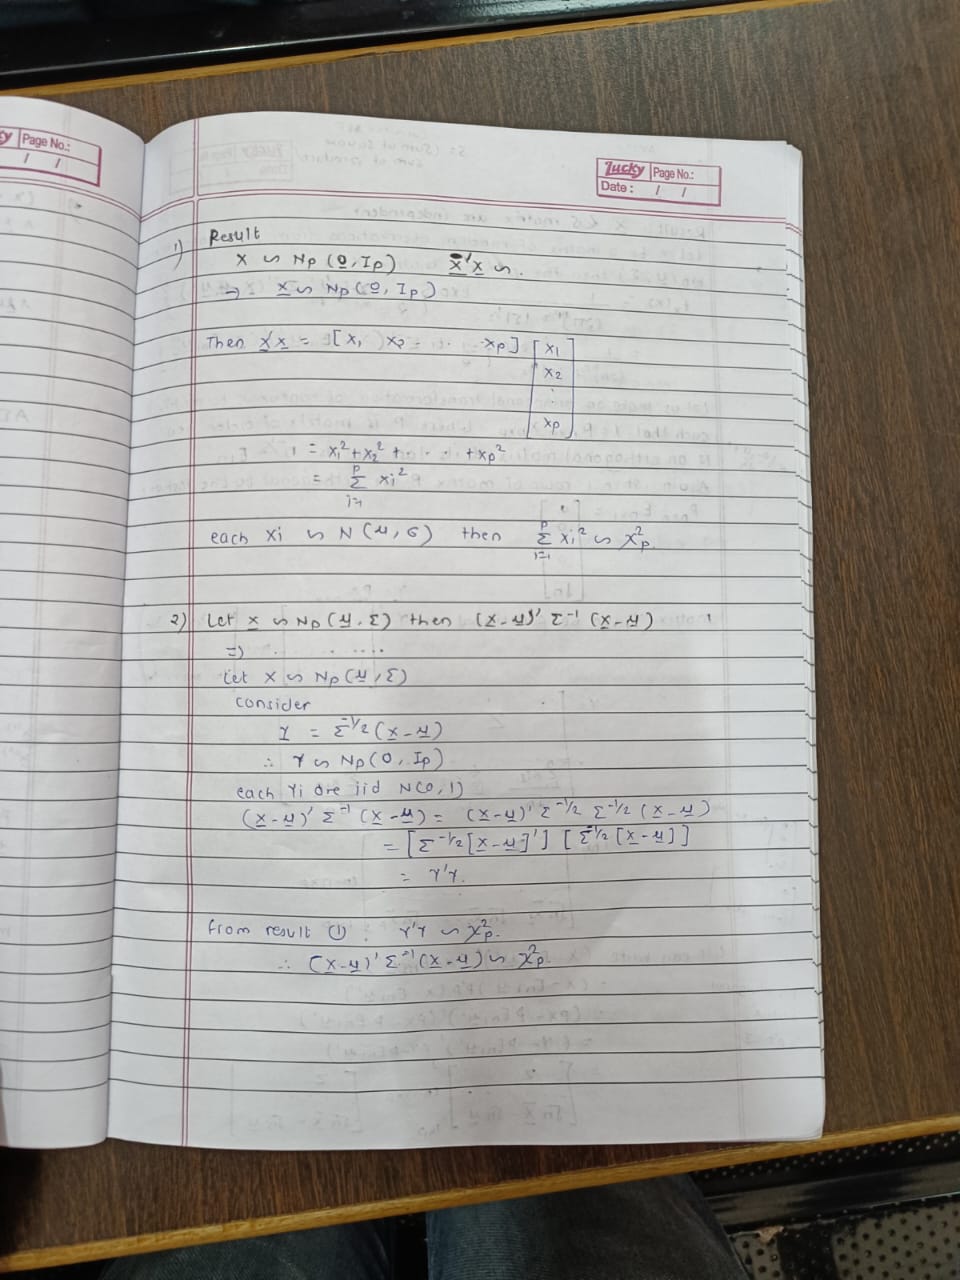 Page No.:
/ /
Lucky Page No.:
Date : / /
Result
1) X ~ Np (0, Ip) X'X ~ .
→ X ~ Np (0, Ip)
Then X'X = [x1 x2 - . . xp] [x1
x2
.
xp]
= x1² + x2² + . . . + xp²
= Σ xi²
p
i=1
each xi ~ N (μ, σ) then Σ xi² ~ χ²p.
p
i=1
2) Let X ~ Np (μ, Σ) then (X-μ)' Σ⁻¹ (X-μ)
=) . . ....
Let X ~ Np (μ, Σ)
consider
Y = Σ^-1/2 (X-μ)
∴ Y ~ Np (0, Ip)
each Yi are iid N(0, 1)
(X-μ)' Σ⁻¹ (X-μ) = (X-μ)' Σ^-1/2 Σ^-1/2 (X-μ)
= [Σ^-1/2 [X-μ]'] [Σ^-1/2 [X-μ]]
= Y'Y.
from result (1) : Y'Y ~ χ²p.
∴ (X-μ)' Σ⁻¹ (X-μ) ~ χ²p